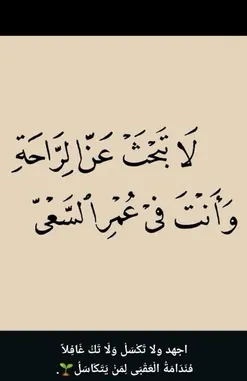 لَا تَبْحَثَ عَنْ الرَّاحَةِ
وَأَنْتَ فِيْ عُمْرِ السَّعْيّ
اجهد ولا تَكْسَلْ وَلَا تَكُ غَافِلاً
فَنَدَامَةُ الْعُقْبَى لِمَنْ يَتَكَاسَلُ🌱.